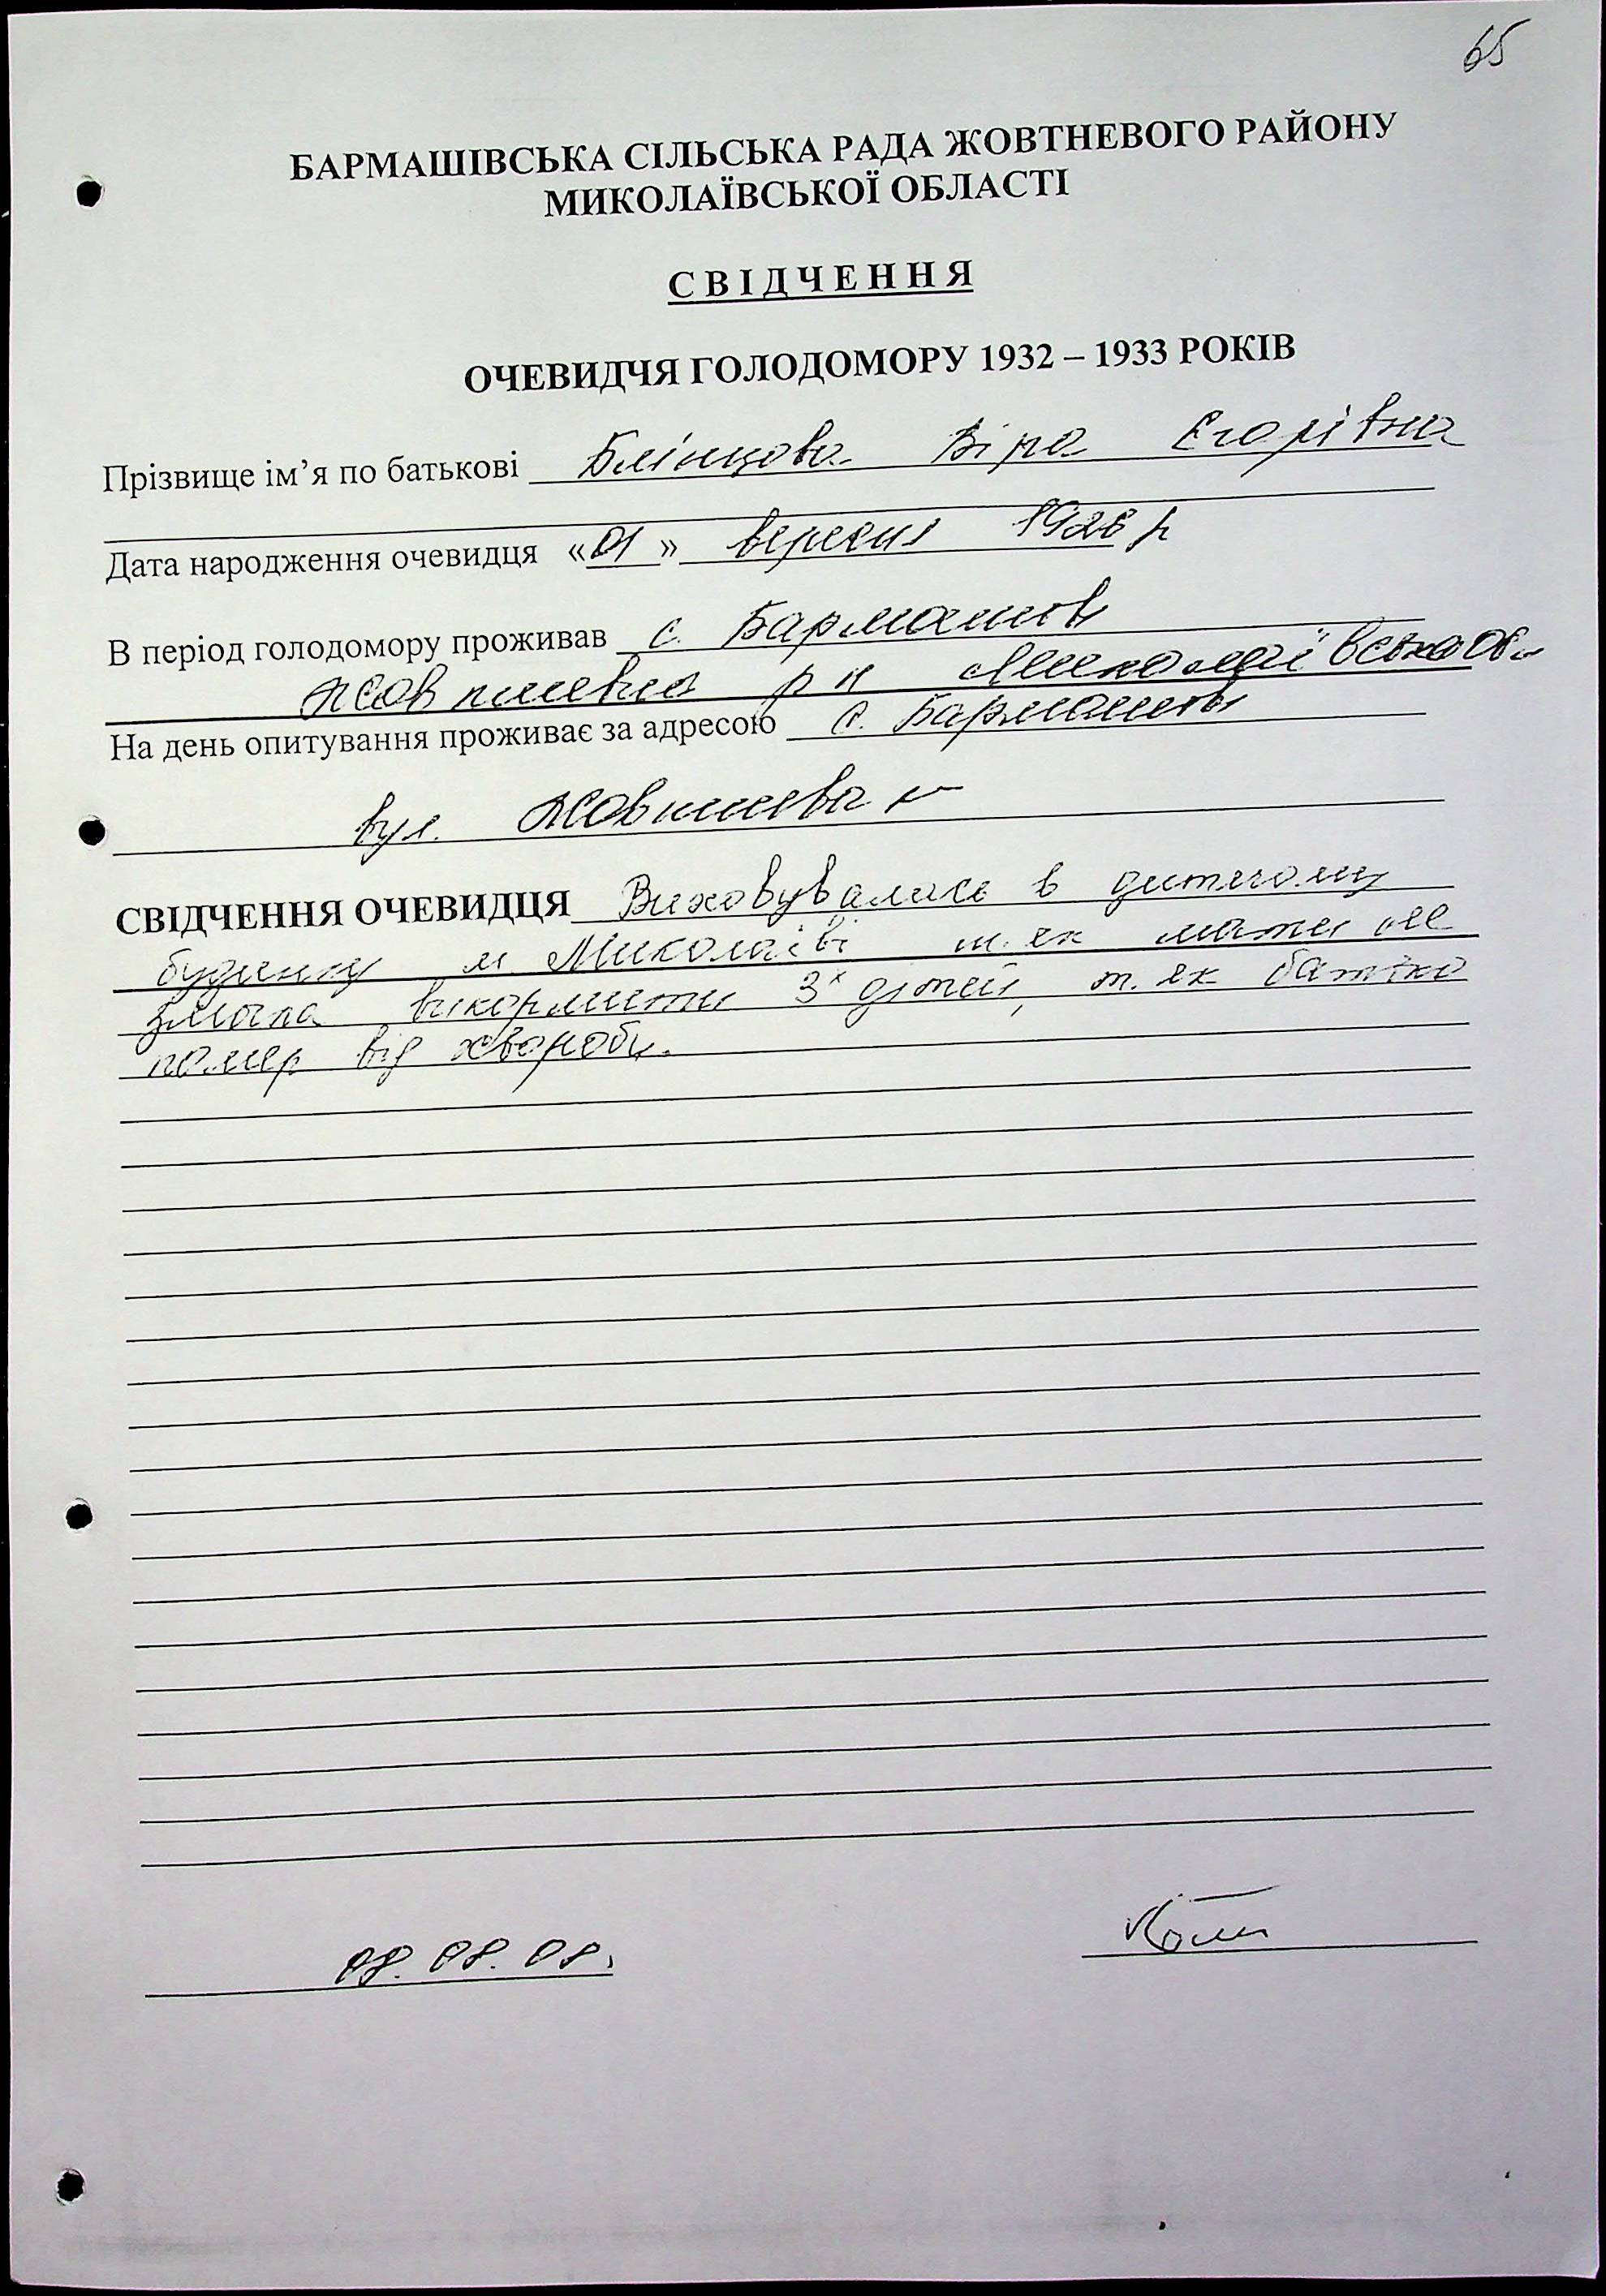 65
БАРМАШІВСЬКА СІЛЬСЬКА РАДА ЖОВТНЕВОГО РАЙОНУ
МИКОЛАЇВСЬКОЇ ОБЛАСТІ
СВІДЧЕННЯ
ОЧЕВИДЧЯ ГОЛОДОМОРУ 1932 – 1933 РОКІВ
Прізвище ім’я по батькові Блінцова Віра Єгорівна
Дата народження очевидця «01» вересня 1926 р
В період голодомору проживав с. Бармашов
Жовтнева р н Миколаївська об.
На день опитування проживає за адресою с. Бармашов
вул. Жовтнева
СВІДЧЕННЯ ОЧЕВИДЦЯ Виховувалась в дитячому
будинку м. Миколаїві т. як мати не
змогла викормити 3х дітей, т. як батько
помер від хвороби.
08. 08. 08.